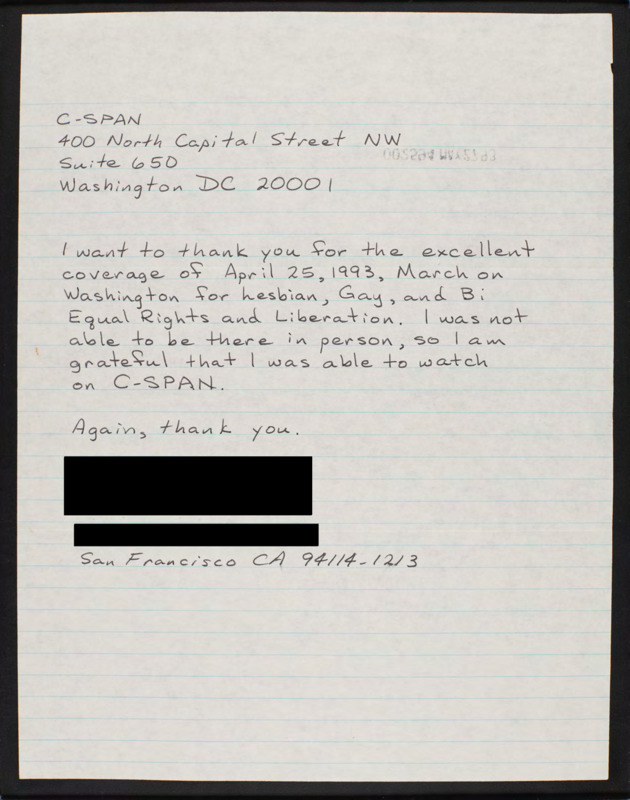 C-SPAN
400 North Capital Street NW
Suite 650
Washington DC 20001
I want to thank you for the excellent
coverage of April 25, 1993, March on
Washington for Lesbian, Gay, and Bi
Equal Rights and Liberation. I was not
able to be there in person, so I am
grateful that I was able to watch
on C-SPAN.
Again, thank you.
San Francisco CA 94114-1213